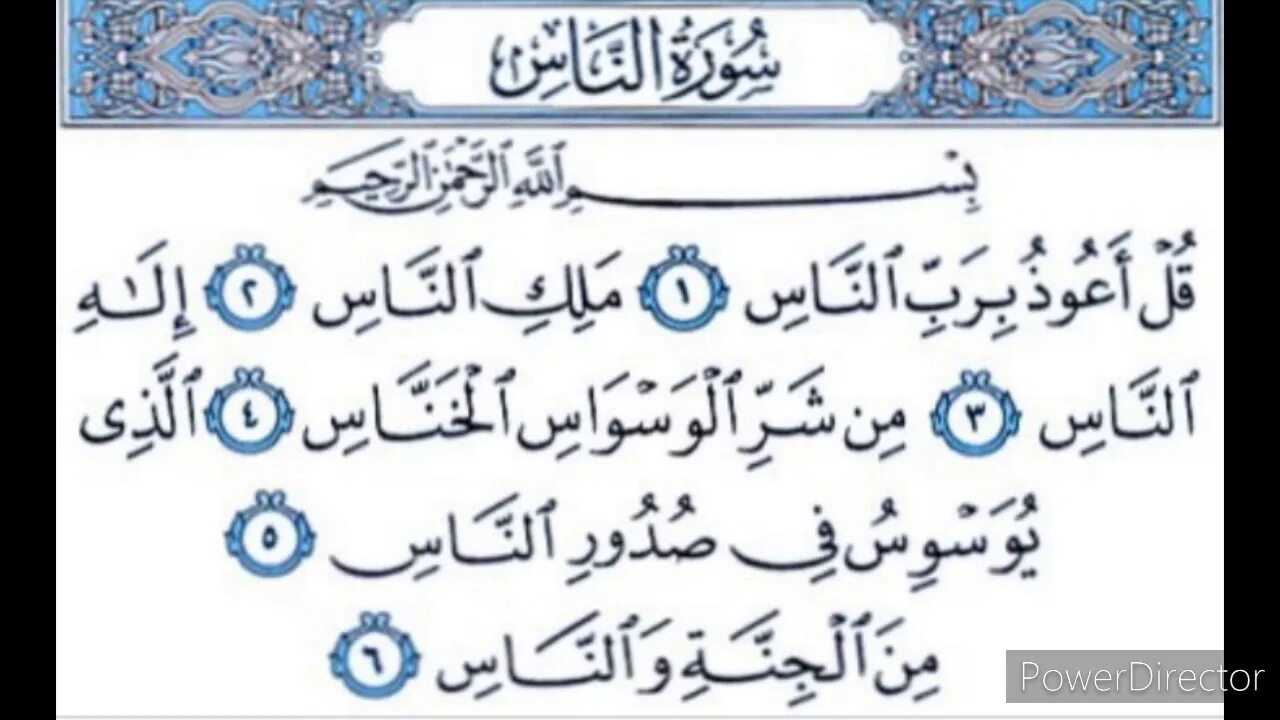 سُورَةُ النَّاسِ
بِسْمِ ٱللَّهِ ٱلرَّحْمَٰنِ ٱلرَّحِيمِ
قُلْ أَعُوذُ بِرَبِّ ٱلنَّاسِ ١ مَلِكِ ٱلنَّاسِ ٢ إِلَٰهِ
ٱلنَّاسِ ٣ مِن شَرِّ ٱلْوَسْوَاسِ ٱلْخَنَّاسِ ٤ ٱلَّذِى
يُوَسْوِسُ فِى صُدُورِ ٱلنَّاسِ ٥
مِنَ ٱلْجِنَّةِ وَٱلنَّاسِ ٦
PowerDirector